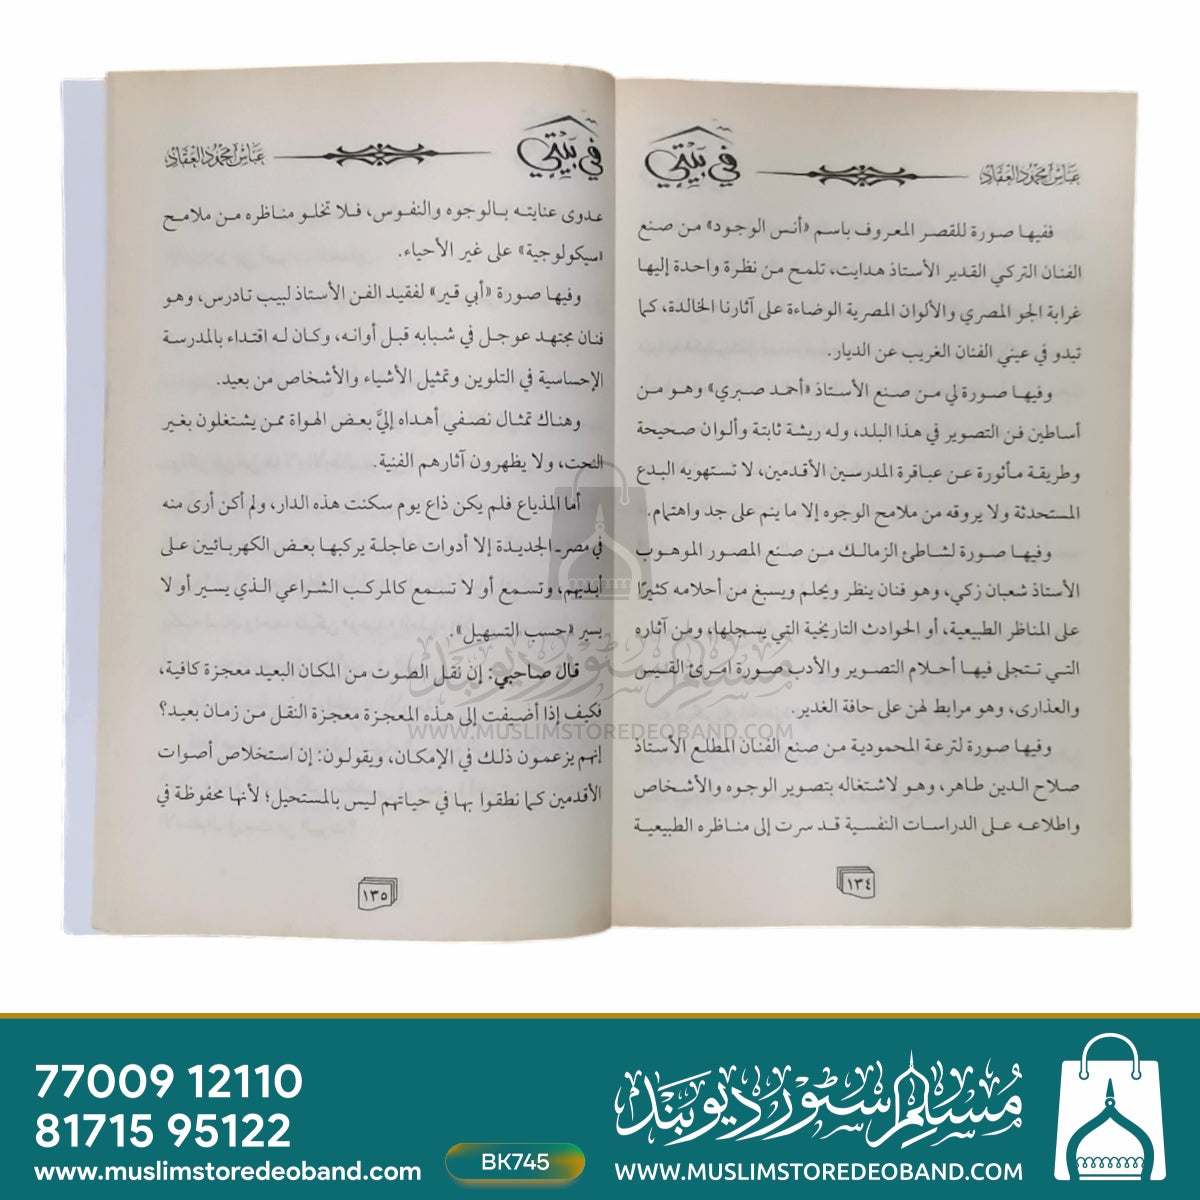 عباس محمود العقاد
في بيتي
ففيها صورة للقصر المعروف باسم «أنس الوجود» من صنع
الفنان التركي القدير الأستاذ هدايت، تلمح من نظرة واحدة إليها
غرابة الجو المصري والألوان المصرية الوضاءة على آثارنا الخالدة، كما
تبدو في عيني الفنان الغريب عن الديار.
وفيها صورة لي من صنع الأستاذ «أحمد صبري» وهو من
أساطين فن التصوير في هذا البلد، وله ريشة ثابتة وألوان صحيحة
وطريقة مأثورة عن عباقرة المدرسين الأقدمين، لا تستهويه البدع
المستحدثة ولا يروقه من ملامح الوجوه إلا ما ينم على جد واهتمام.
وفيها صورة لشاطئ الزمالك من صنع المصور الموهوب
الأستاذ شعبان زكي، وهو فنان ينظر ويحلم ويسبغ من أحلامه كثيرًا
على المناظر الطبيعية، أو الحوادث التاريخية التي يسجلها، ومن آثاره
التي تتجلى فيها أحلام التصوير والأدب صورة امرئ القيس
والعذارى، وهو مرابط لهن على حافة الغدير.
وفيها صورة لترعة المحمودية من صنع الفنان المطلع الأستاذ
صلاح الدين طاهر، وهو لاشتغاله بتصوير الوجوه والأشخاص
واطلاعه على الدراسات النفسية قد سرت إلى مناظره الطبيعية
١٣٤
في بيتي
عباس محمود العقاد
عدوى عنايته بالوجوه والنفوس، فلا تخلو مناظره من ملامح
«سيكولوجية» على غير الأحياء.
وفيها صورة «أبي قير» لفقيد الفن الأستاذ لبيب تادرس، وهو
فنان مجتهد عوجل في شبابه قبل أوانه، وكان له اقتداء بالمدرسة
الإحساسية في التلوين وتمثيل الأشياء والأشخاص من بعيد.
وهناك تمثال نصفي أهداه إليَّ بعض الهواة ممن يشتغلون بغير
النحت، ولا يظهرون آثارهم الفنية.
أما المذياع فلم يكن ذاع يوم سكنت هذه الدار، ولم أكن أرى منه
في مصر الجديدة إلا أدوات عاجلة يركبها بعض الكهربائيين على
أيديهم، وتسمع أو لا تسمع كالمركب الشراعي الذي يسير أو لا
يسير «حسب التسهيل».
قال صاحبي: إن نقل الصوت من المكان البعيد معجزة كافية،
فكيف إذا أضيفت إلى هذه المعجزة معجزة النقل من زمان بعيد؟
إنهم يزعمون ذلك في الإمكان، ويقولون: إن استخلاص أصوات
الأقدمين كما نطقوا بها في حياتهم ليس بالمستحيل؛ لأنها محفوظة في
١٣٥
مسلم سٹور دیوبند
WWW.MUSLIMSTOREDEOBAND.COM
77009 12110
81715 95122
www.muslimstoredeoband.com
BK745
مسلم سٹور دیوبند
WWW.MUSLIMSTOREDEOBAND.COM